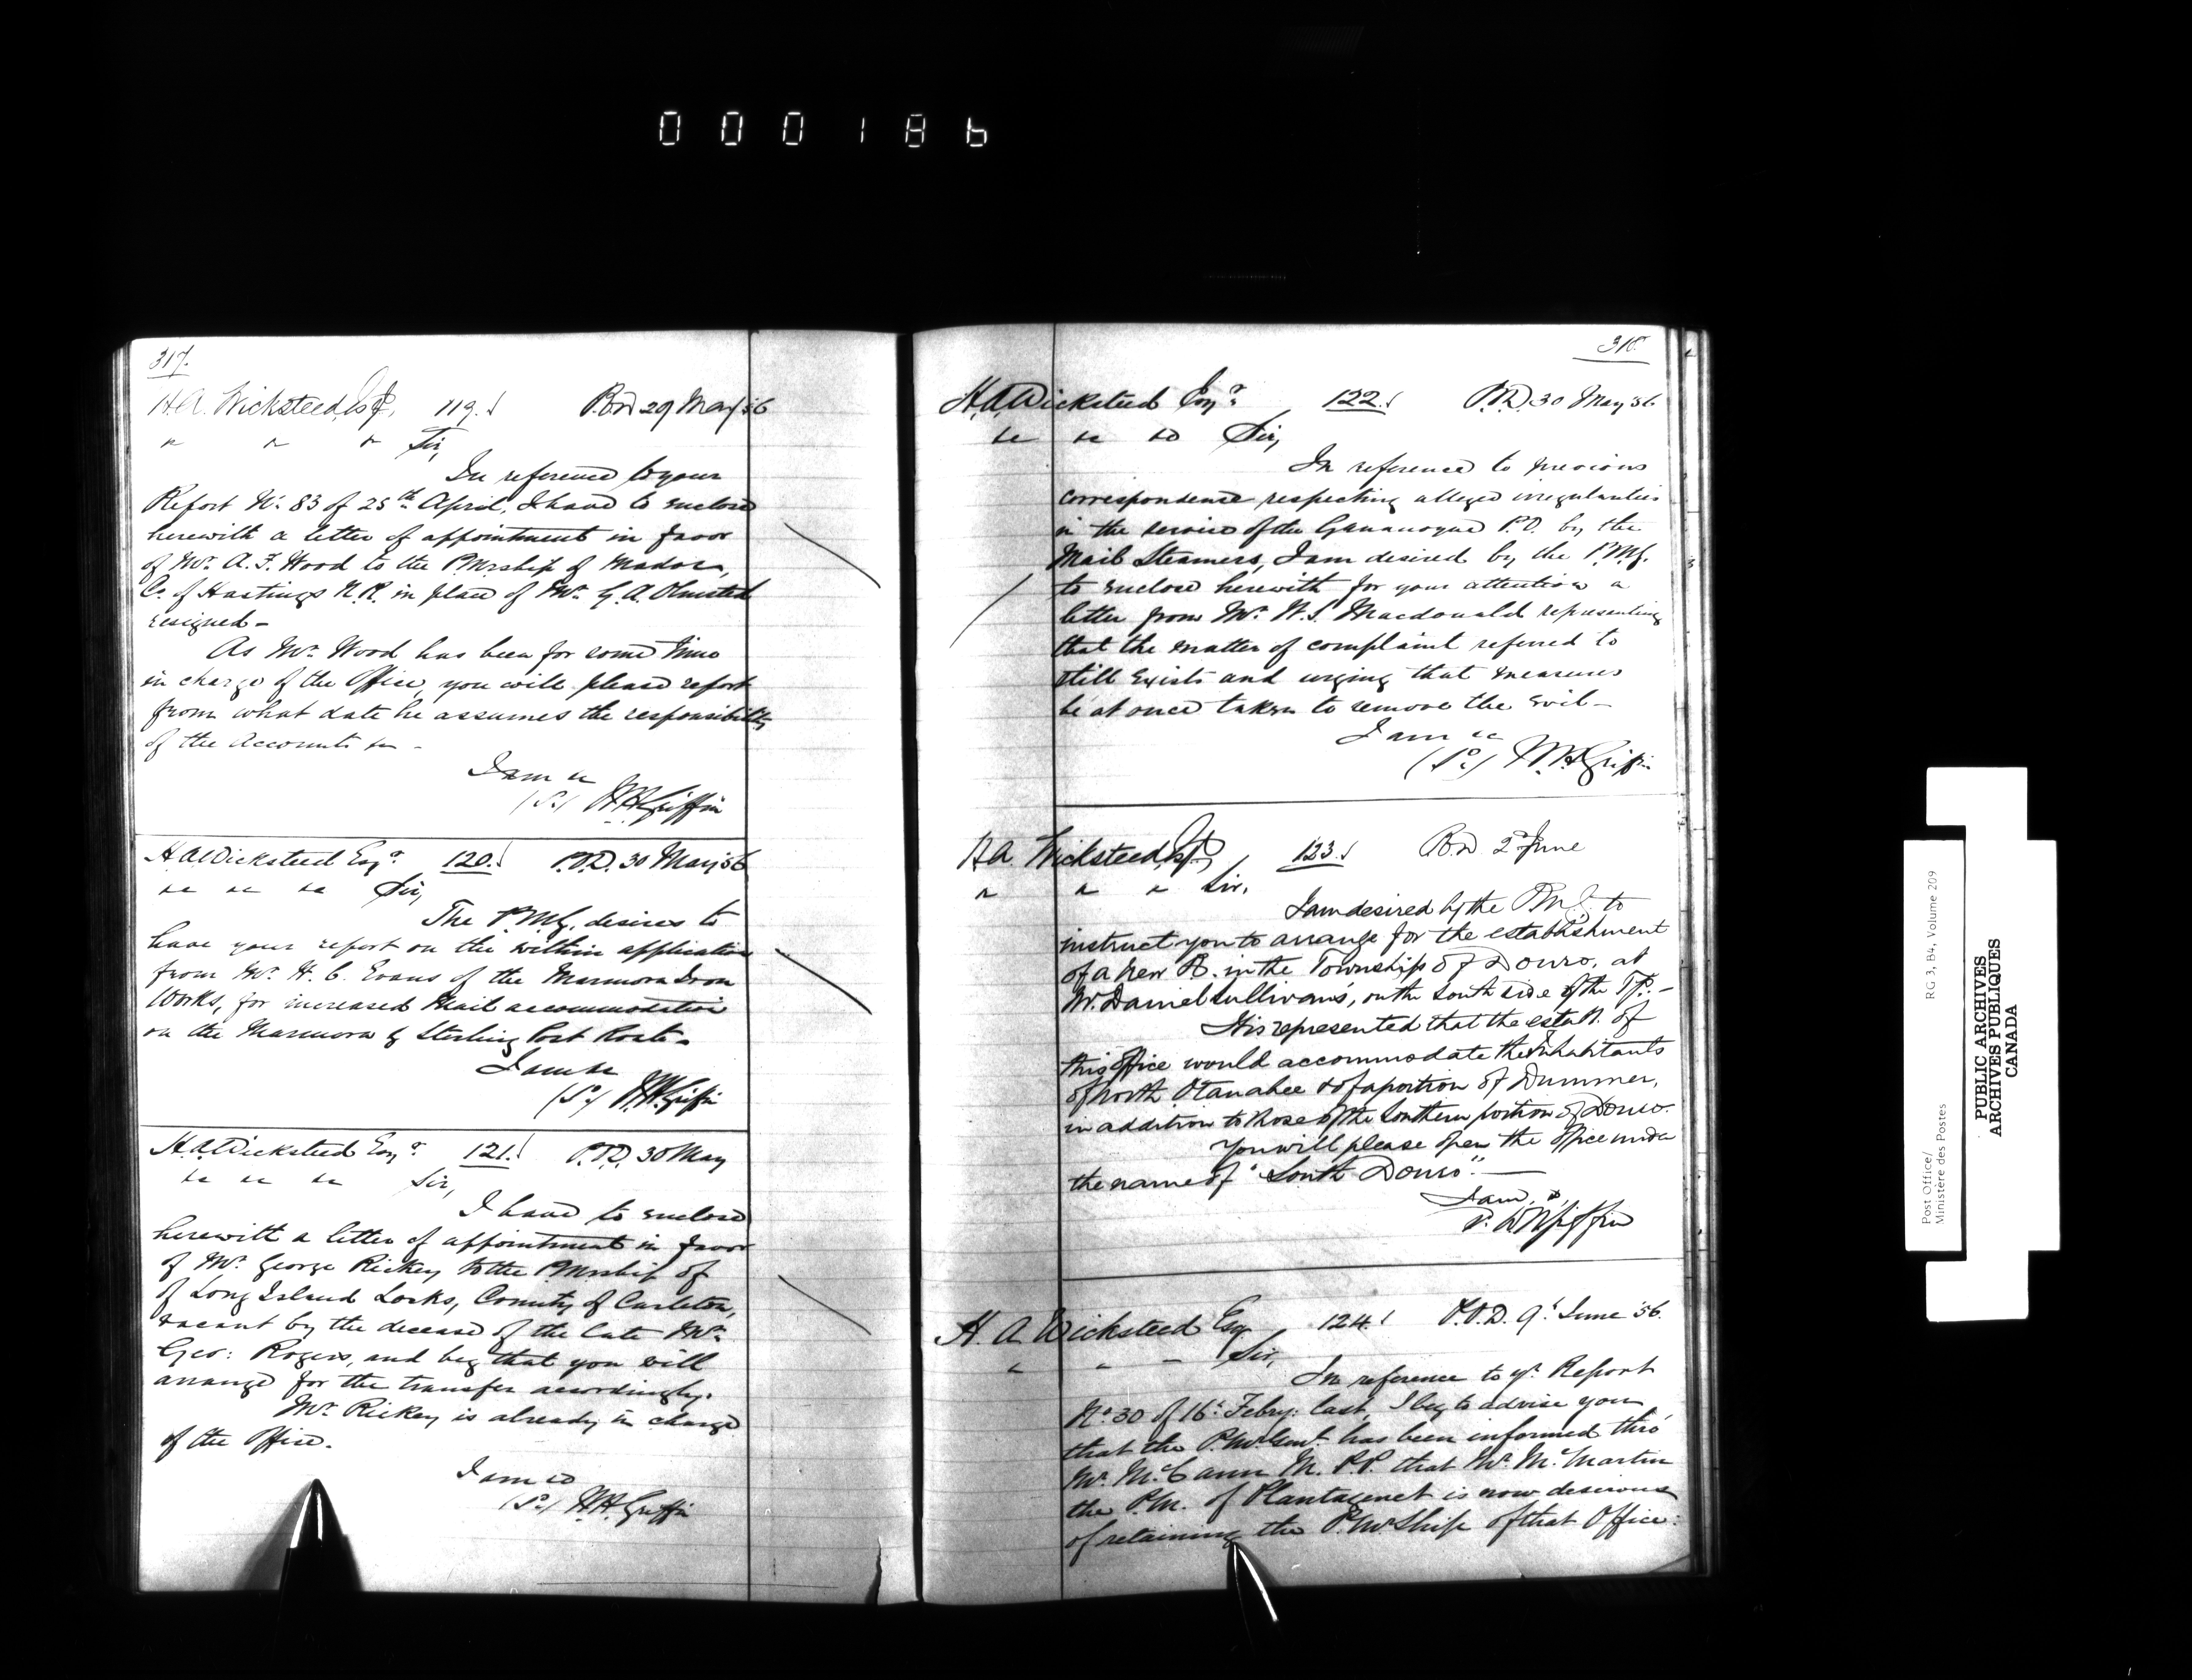 000186
317.
H.A. Wicksteed Esqr. 119. P.O.D 29 May 56
" " " Sir,
In reference to your
Report No. 83 of 25th April, I have to enclose
herewith a letter of appointment in favor
of Mr. A. F. Wood to the PMrship of Madoc,
Co. of Hastings N.R. in place of Mr. G. A. Olmsted
resigned -
As Mr. Wood has been for some time
in charge of the Office, you will please report
from what date he assumes the responsibility
of the Accounts &c -
I am &c
(Sd) W.H. Griffin
H.A. Wicksteed Esqr. 120. P.O.D. 30 May 56
&c &c &c Sir,
The P.M.G. desires to
have your report on the within application
from Mr. H. C. Evans of the Marmora Iron
Works, for increased Mail accommodation
on the Marmora & Sterling Post Route -
I am &c
(Sd) W.H. Griffin
H.A. Wicksteed Esqr. 121. P.O.D. 30 May
&c &c &c Sir,
I have to enclose
herewith a letter of appointment in favor
of Mr. George Rickey to the PMrship of
of Long Island Locks, County of Carleton,
vacant by the decease of the late Mr.
Geo: Rogers, and beg that you will
arrange for the transfer accordingly.
Mr. Rickey is already in charge
of the Office.
I am &c
(Sd) W.H. Griffin
318.
H.A. Wicksteed Esqr. 122. P.O.D. 30 May 56
&c &c &c Sir,
In reference to previous
correspondence respecting alleged irregularities
in the service of the Gananoque P.O. by the
Mail Steamers, I am desired by the P.M.G.
to enclose herewith for your attention a
letter from Mr. W. S. Macdonald representing
that the matter of complaint referred to
still exists and urging that measures
be at once taken to remove the evil -
I am &c
(Sd) W.H. Griffin
H.A. Wicksteed Esqr, 123. P.O.D 2d June
" " " Sir,
I am desired by the P.M.G. to
instruct you to arrange for the establishment
of a new P.O. in the Township of Douro, at
Mr. Daniel Sullivan's, on the South side of the Tp. -
It is represented that the estabt. of
this office would accommodate the Inhabitants
of North Otanabee & of a portion of Dummer,
in addition to those of the Southern portion of Douro.
You will please open the office under
the name of "South Douro". -
I am, &c,
s. W.H. Griffin
H. A. Wicksteed Esq 124. P.O.D. 9th June '56.
" " " Sir,
In reference to yr. Report
No. 30 of 16th Febry: last, I beg to advise you
that the P.Mr Genl. has been informed thro'
Mr. McCann M.P.P. that Mr. McMartin
the P.M. of Plantagenet is now desirous
of retaining the P.Mr Ship of that Office:
Post Office/
Ministère des Postes
RG 3, B4, Volume 209
PUBLIC ARCHIVES
ARCHIVES PUBLIQUES
CANADA